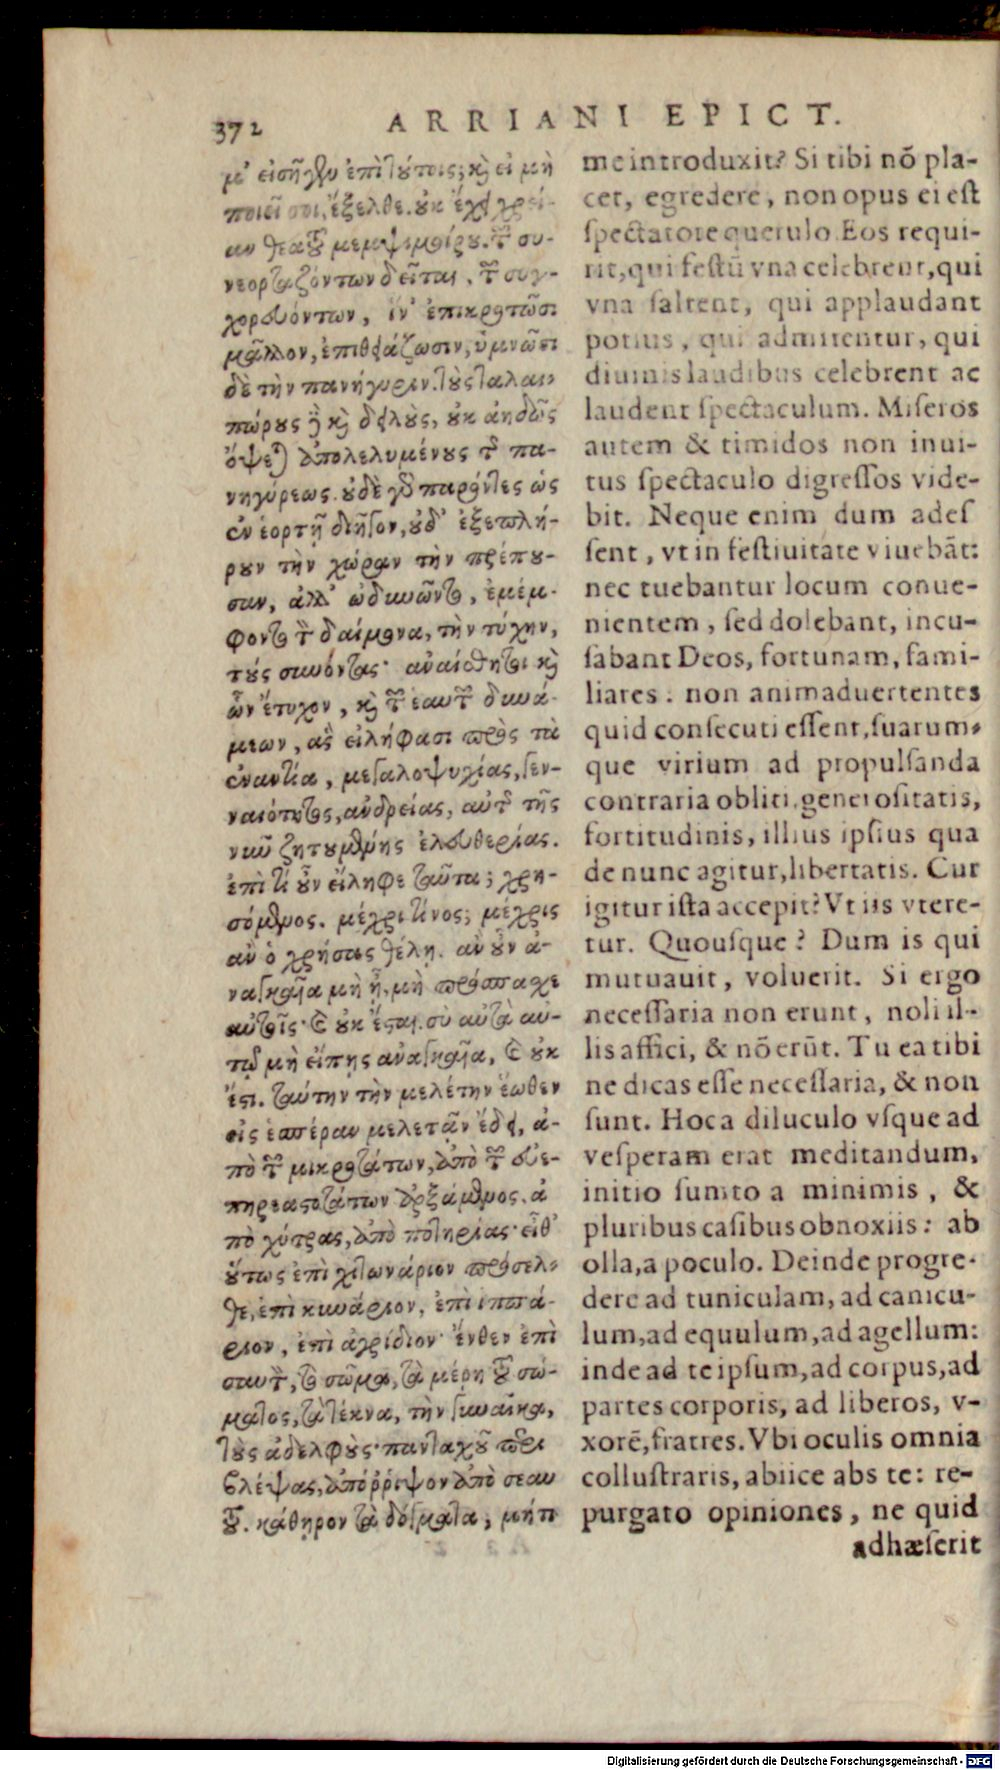 372 ARRIANI EPICT.
μ' εἰσῆγεν ἐπὶ τούτοις; καὶ εἰ μὴ
ποιεῖ σοι, ἔξελθε. οὐκ ἔχει χρεί-
αν θεατοῦ μεμψιμοίρου. τῶν συ-
νεορταζόντων δεῖται, τῶν συγ-
χορευόντων, ἵν' ἐπικροτῶσι
μᾶλλον, ἐπιθειάζωσιν, ὑμνῶσι
δὲ τὴν πανήγυριν. τοὺς ταλαι-
πώρους ἢ καὶ δειλοὺς, οὐκ ἀηδῶς
ὄψεται ἀπολελυμένους τῆς πα-
νηγύρεως. οὐδὲ γὰρ παρόντες ὡς
ἐν ἑορτῇ διῆγον, οὐδ' ἐξεπλή-
ρουν τὴν χώραν τὴν πρέπου-
σαν, ἀλλ' ὠδυνῶντο, ἐμέμ-
φοντο τὸν δαίμονα, τὴν τύχην,
τοὺς συνόντας· ἀναίσθητοι καὶ
ὧν ἔτυχον, καὶ τῶν ἑαυτῶν δυνά-
μεων, ἃς εἰλήφασι πρὸς τὰ
ἐναντία, μεγαλοψυχίας, γεν-
ναιότητος, ἀνδρείας, αὐτῆς τῆς
νῦν ζητουμένης ἐλευθερίας.
ἐπὶ τί οὖν εἴληφε ταῦτα; χρη-
σόμενος. μέχρι τίνος; μέχρις
ἂν ὁ χρήσας θέλῃ. ἂν οὖν ἀ-
ναγκαῖα μὴ ᾖ, μὴ πρόσπαχε
αὐτοῖς· καὶ οὐκ ἔσται. σὺ αὐτὰ αὑ-
τῷ μὴ εἴπῃς ἀναγκαῖα, καὶ οὐκ
ἔστι. ταύτην τὴν μελέτην ἕωθεν
εἰς ἑσπέραν μελετᾷν ἔδει, ἀ-
πὸ τῶν μικροτάτων, ἀπὸ τῶν εὐε-
πηρεαστοτάτων ἀρξάμενος. ἀ
πὸ χύτρας, ἀπὸ ποτηρίας· εἶθ'
οὕτως ἐπὶ χιτωνάριον πρόσελ-
θε, ἐπὶ κυνάριον, ἐπὶ ἱππά-
ριον, ἐπὶ ἀγρίδιον· ἔνθεν ἐπὶ
σαυτὸν, τὸ σῶμα, τὰ μέρη τοῦ σώ-
ματος, τὰ τέκνα, τὴν γυναῖκα,
τοὺς ἀδελφούς· πανταχοῦ περι
βλέψας, ἀπόῤῥιψον ἀπὸ σεαυ
τοῦ. κάθηρον τὰ δόγματα, μήπ
me introduxit? Si tibi nõ pla-
cet, egredere, non opus ei est
spectatore querulo. Eos requi-
rit, qui festũ vna celebrent, qui
vna saltent, qui applaudant
potius, qui admirentur, qui
diuinis laudibus celebrent ac
laudent spectaculum. Miseros
autem & timidos non inui-
tus spectaculo digressos vide-
bit. Neque enim dum ades
sent, vt in festiuitate viuebãt:
nec tuebantur locum conue-
nientem, sed dolebant, incu-
sabant Deos, fortunam, fami-
liares: non animaduertentes
quid consecuti essent, suarum-
que virium ad propulsanda
contraria obliti, generositatis,
fortitudinis, illius ipsius qua
de nunc agitur, libertatis. Cur
igitur ista accepit? Vt iis vtere-
tur. Quousque? Dum is qui
mutuauit, voluerit. Si ergo
necessaria non erunt, noli il-
lis affici, & nõ erũt. Tu ea tibi
ne dicas esse necessaria, & non
sunt. Hoc a diluculo vsque ad
vesperam erat meditandum,
initio sumto a minimis, &
pluribus casibus obnoxiis: ab
olla, a poculo. Deinde progre-
dere ad tuniculam, ad canicu-
lum, ad equulum, ad agellum:
inde ad te ipsum, ad corpus, ad
partes corporis, ad liberos, v-
xorẽ, fratres. Vbi oculis omnia
collustraris, abiice abs te: re-
purgato opiniones, ne quid
adhæserit
Digitalisierung gefördert durch die Deutsche Forschungsgemeinschaft - DFG